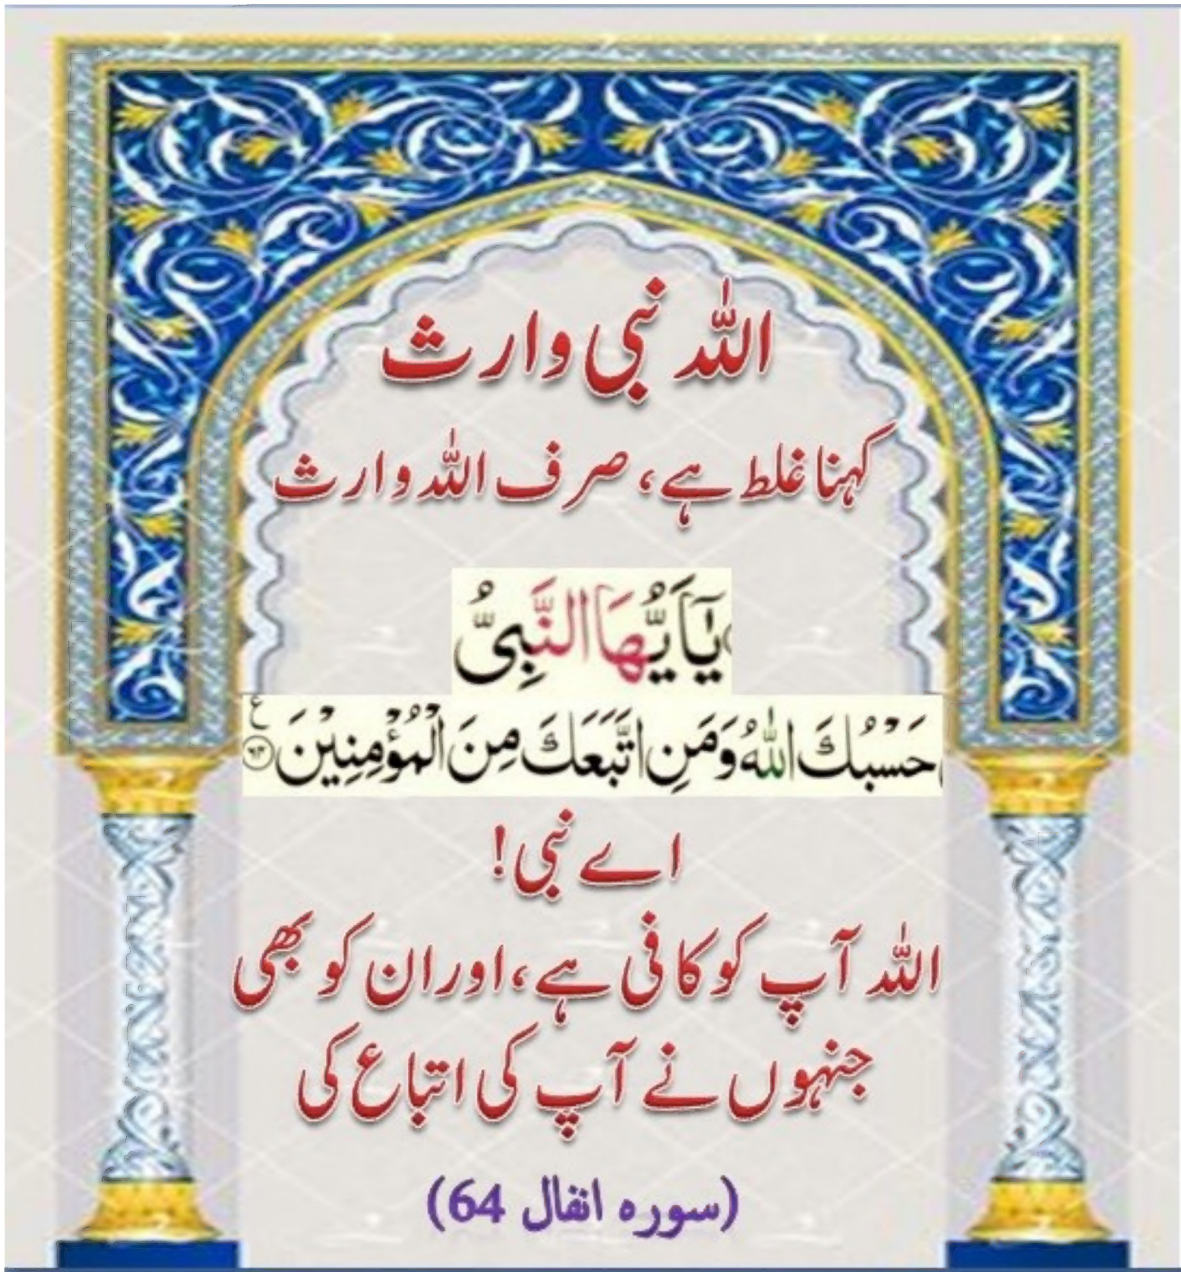 اللہ نبی وارث
کہنا غلط ہے، صرف اللہ وارث
يٰٓاَيُّهَا النَّبِىُّ
حَسْبُكَ اللّٰهُ وَمَنِ اتَّبَعَكَ مِنَ الْمُؤْمِنِيْنَ ع ۶۴
اے نبی!
اللہ آپ کو کافی ہے، اور ان کو بھی
جنہوں نے آپ کی اتباع کی
(سورہ انفال 64)